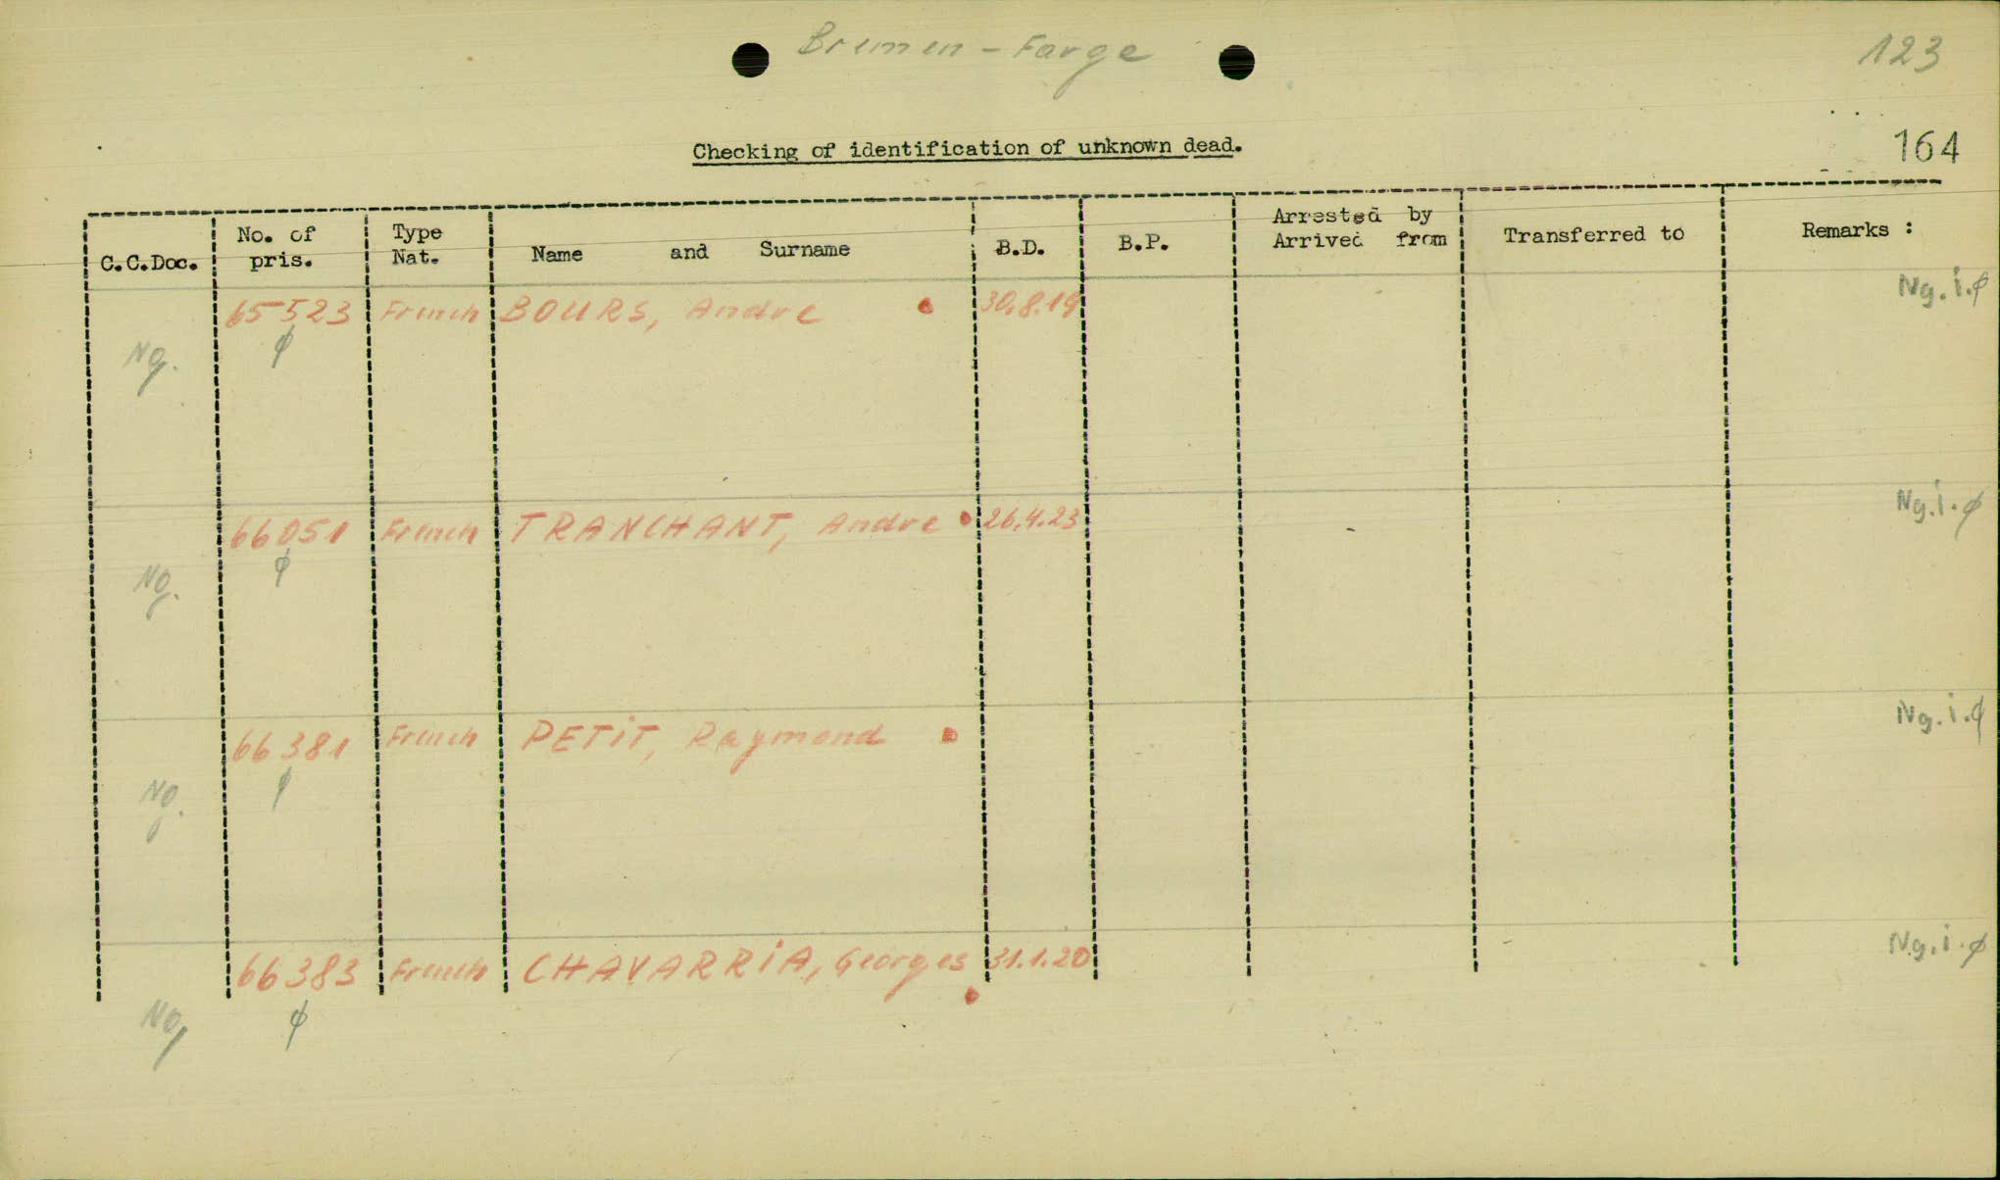 Bremen - Farge
123
Checking of identification of unknown dead.
164
C.C.Doc. No. of pris. Type Nat. Name and Surname B.D. B.P. Arrested by Arrived from Transferred to Remarks :
65523 French BOURS, Andre 30.8.19 Ng. i. ∅
Ng. ∅
66051 French TRANCHANT, Andre 26.4.23 Ng. i. ∅
Ng. ∅
66381 French PETiT, Raymond Ng. i. ∅
Ng. ∅
66383 French CHAVARRiA, Georges 31.1.20 Ng. i. ∅
Ng. ∅